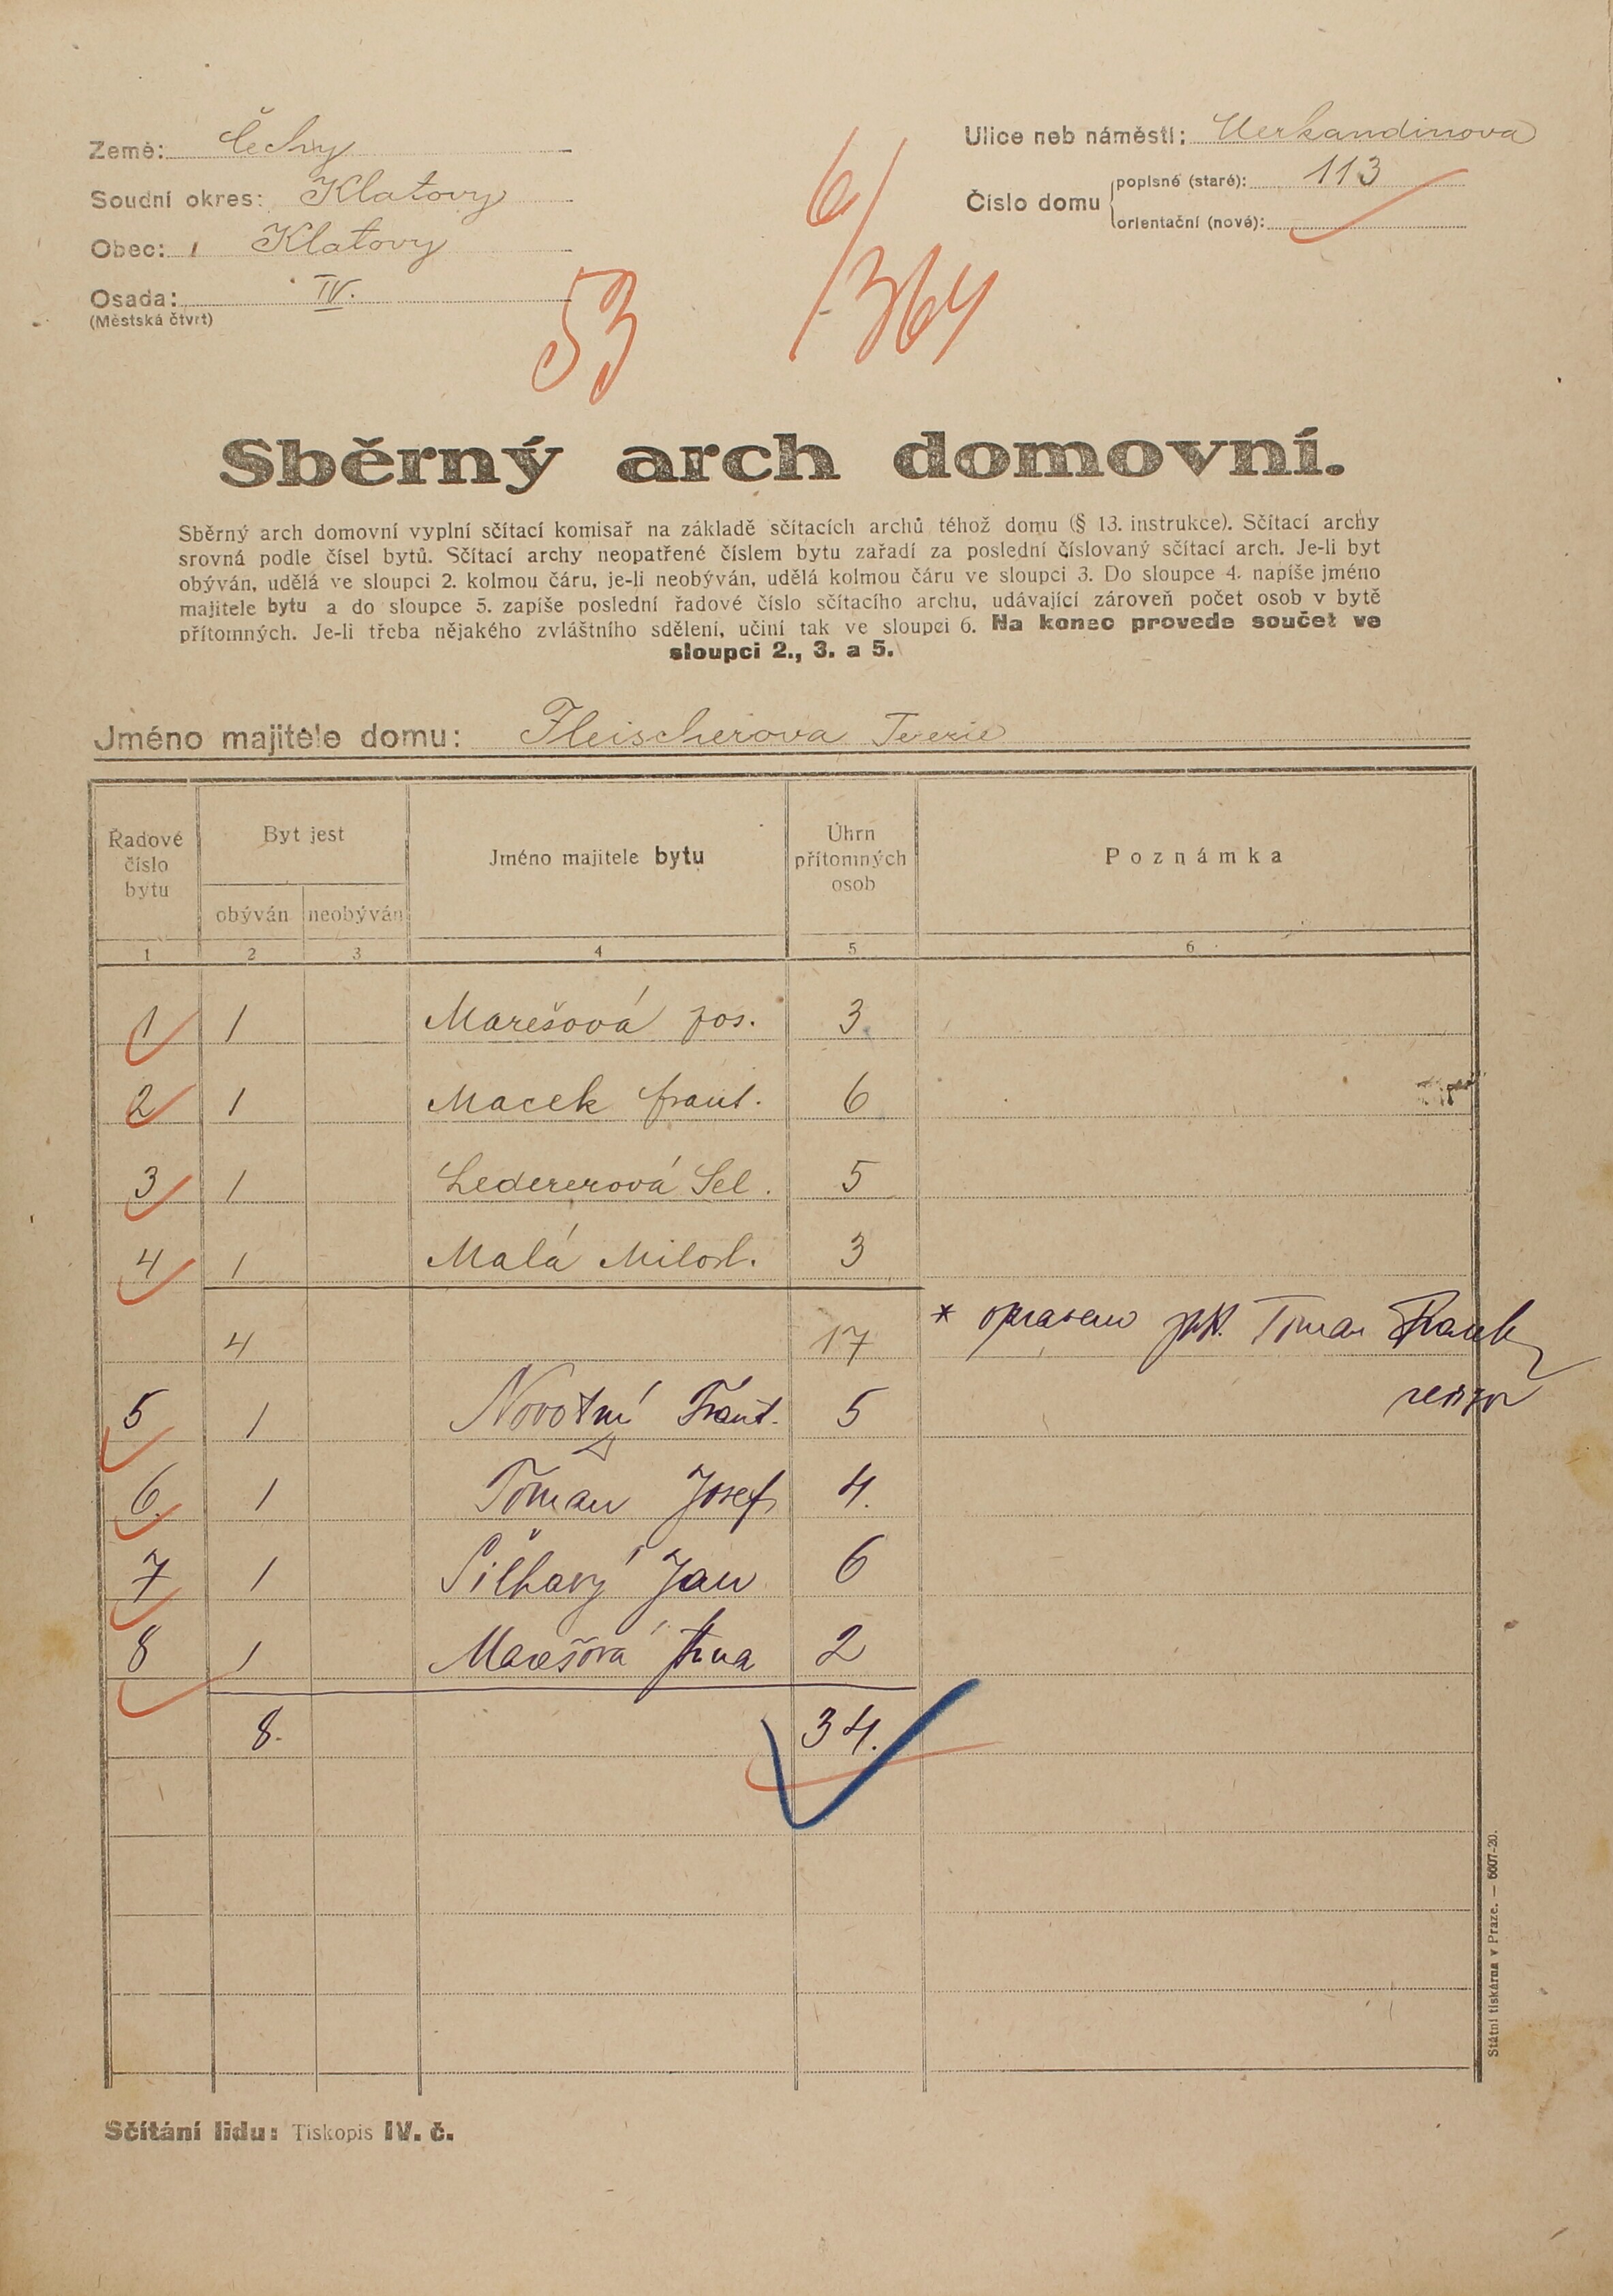 Země: Čechy
Soudní okres: Klatovy
Obec: Klatovy
Osada: IV.
(Městská čtvrt)
Ulice neb náměstí:
Číslo domu
popisné (staré): 113
orientační (nové):
6/364
53
Sběrný arch domovní.
Sběrný arch domovní vyplní sčítací komisař na základě sčítacích archů téhož domu (§ 13. instrukce). Sčítací archy
srovná podle čísel bytů. Sčítací archy neopatřené číslem bytu zařadí za poslední číslovaný sčítací arch. Je-li byt
obýván, udělá ve sloupci 2. kolmou čáru, je-li neobýván, udělá kolmou čáru ve sloupci 3. Do sloupce 4. napíše jméno
majitele bytu a do sloupce 5. zapíše poslední řadové číslo sčítacího archu, udávající zároveň počet osob v bytě
přítomných. Je-li třeba nějakého zvláštního sdělení, učiní tak ve sloupci 6. Na konec provede součet ve
sloupci 2., 3. a 5.
Jméno majitele domu: Fleischerova
Řadové číslo bytu
Byt jest
obýván
neobýván
Jméno majitele bytu
Úhrn přítomných osob
Poznámka
1 2 3 4 5 6
1 1 Marešová Jos. 3
2 1 Macek Frant. 6
3 1 Ledererová Sel. 5
4 1 Malá Milosl. 3
4 17 * opraveno Toman
revisor
5 1 Novotní Frant. 5
6. 1 Toman Josef 4.
7 1 Šilhavý Jan 6
8 1 Marešová Anna 2
8. 34.
Sčítání lidu: Tiskopis IV. č.
Státní tiskárna v Praze. — 6607-20.